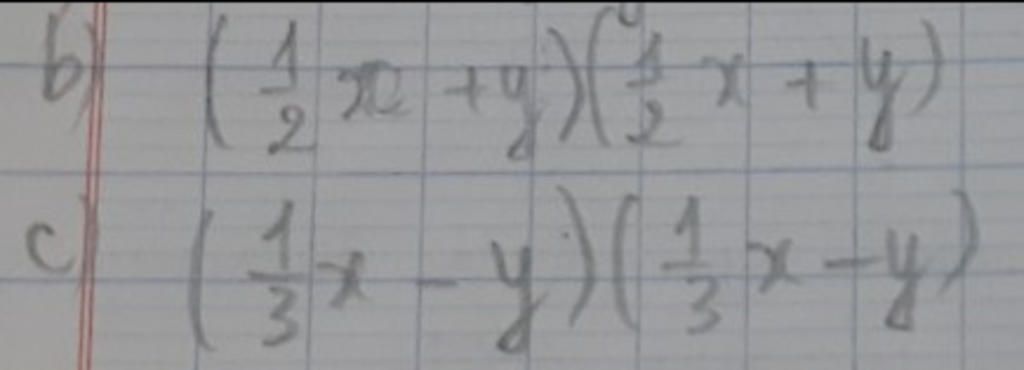 b) (1/2 x + y)(1/2 x + y)
c) (1/3 x - y)(1/3 x - y)